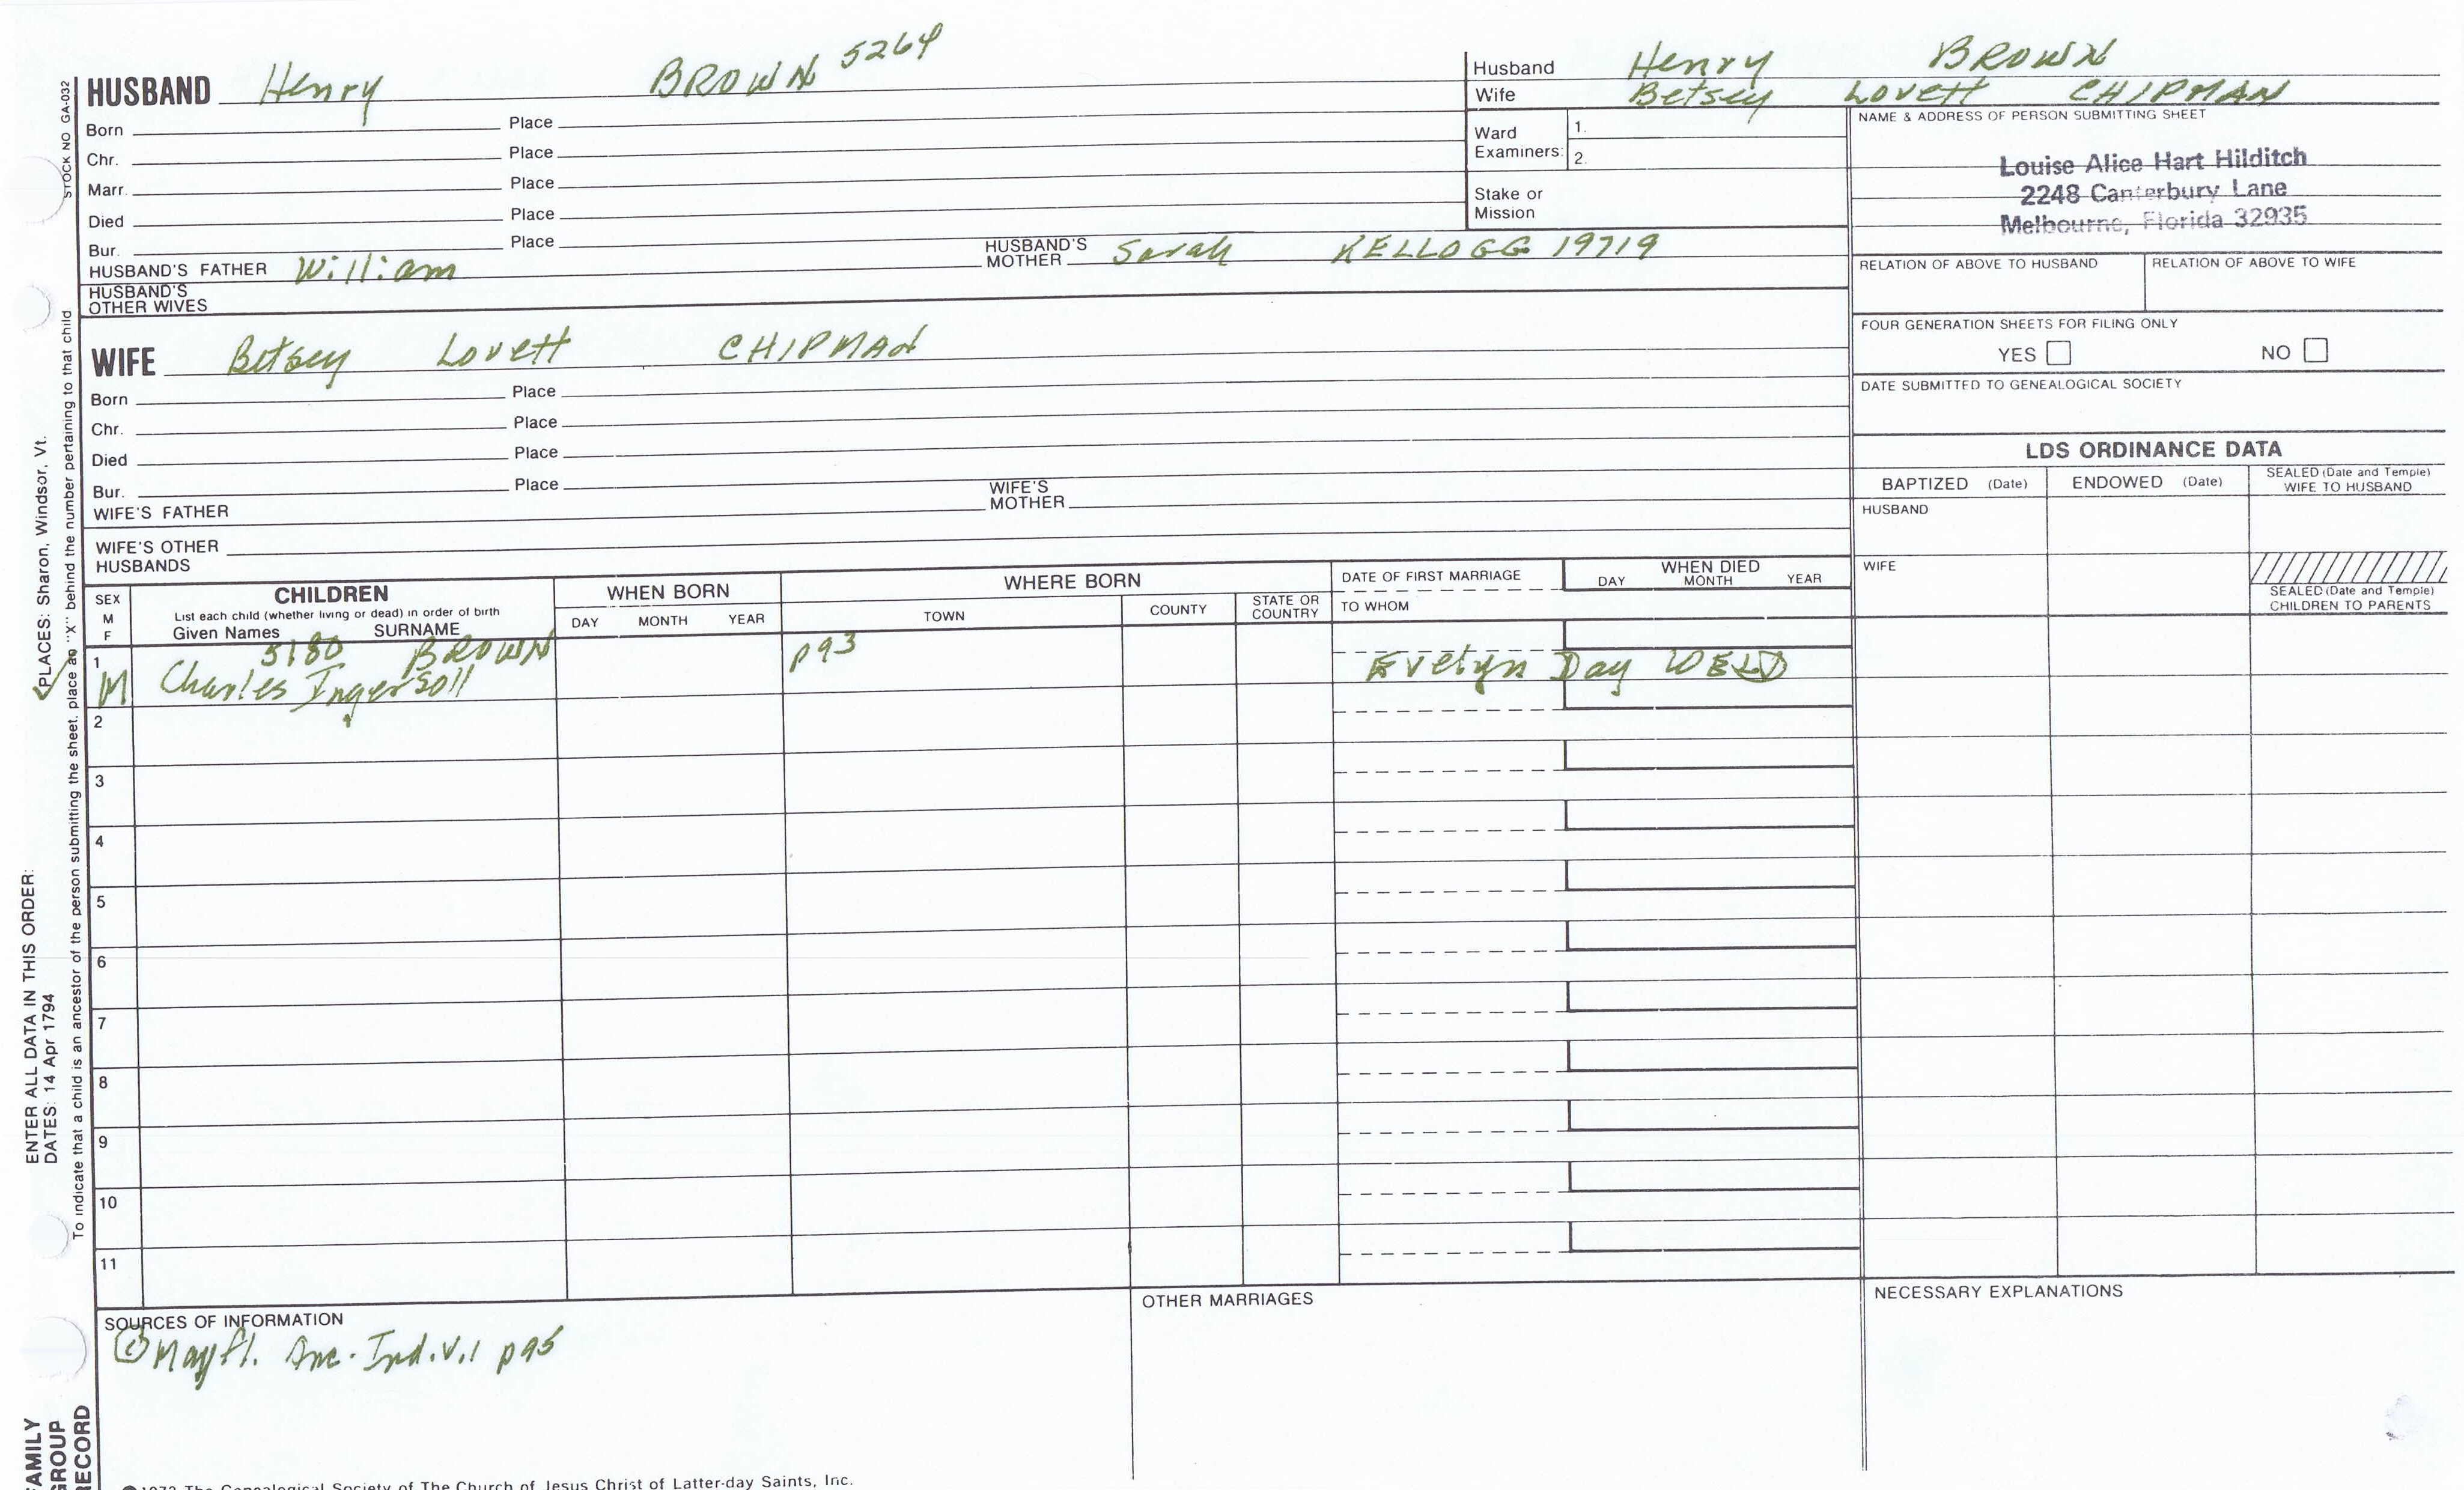 HUSBAND Henry BROWN 5264
Born Place
Chr. Place
Marr. Place
Died Place
Bur. Place
HUSBAND'S FATHER William HUSBAND'S MOTHER Sarah KELLOGG 19719
HUSBAND'S OTHER WIVES
WIFE Betsey Lovett CHIPMAN
Born Place
Chr. Place
Died Place
Bur. Place
WIFE'S FATHER WIFE'S MOTHER
WIFE'S OTHER HUSBANDS
Husband Henry BROWN
Wife Betsey Lovett CHIPMAN
Ward Examiners: 1.
2.
Stake or Mission
NAME & ADDRESS OF PERSON SUBMITTING SHEET
Louise Alice Hart Hilditch
2248 Canterbury Lane
Melbourne, Florida 32935
RELATION OF ABOVE TO HUSBAND RELATION OF ABOVE TO WIFE
FOUR GENERATION SHEETS FOR FILING ONLY
YES NO
DATE SUBMITTED TO GENEALOGICAL SOCIETY
LDS ORDINANCE DATA
BAPTIZED (Date) ENDOWED (Date) SEALED (Date and Temple) WIFE TO HUSBAND
HUSBAND
WIFE
SEALED (Date and Temple) CHILDREN TO PARENTS
SEX M F
CHILDREN
List each child (whether living or dead) in order of birth
Given Names SURNAME
WHEN BORN
DAY MONTH YEAR
WHERE BORN
TOWN COUNTY STATE OR COUNTRY
DATE OF FIRST MARRIAGE
TO WHOM
WHEN DIED
DAY MONTH YEAR
1 5180 BROWN p93
M Charles Ingersoll Evelyn Day WELD
2
3
4
5
6
7
8
9
10
11
SOURCES OF INFORMATION
Mayfl. Anc. Ind. V.1 p95
OTHER MARRIAGES
NECESSARY EXPLANATIONS
1972 The Genealogical Society of The Church of Jesus Christ of Latter-day Saints, Inc.
STOCK NO GA-032
PLACES: Sharon, Windsor, Vt.
To indicate that a child is an ancestor of the person submitting the sheet, place an "X" behind the number pertaining to that child
ENTER ALL DATA IN THIS ORDER:
DATES: 14 Apr 1794
FAMILY
GROUP
RECORD